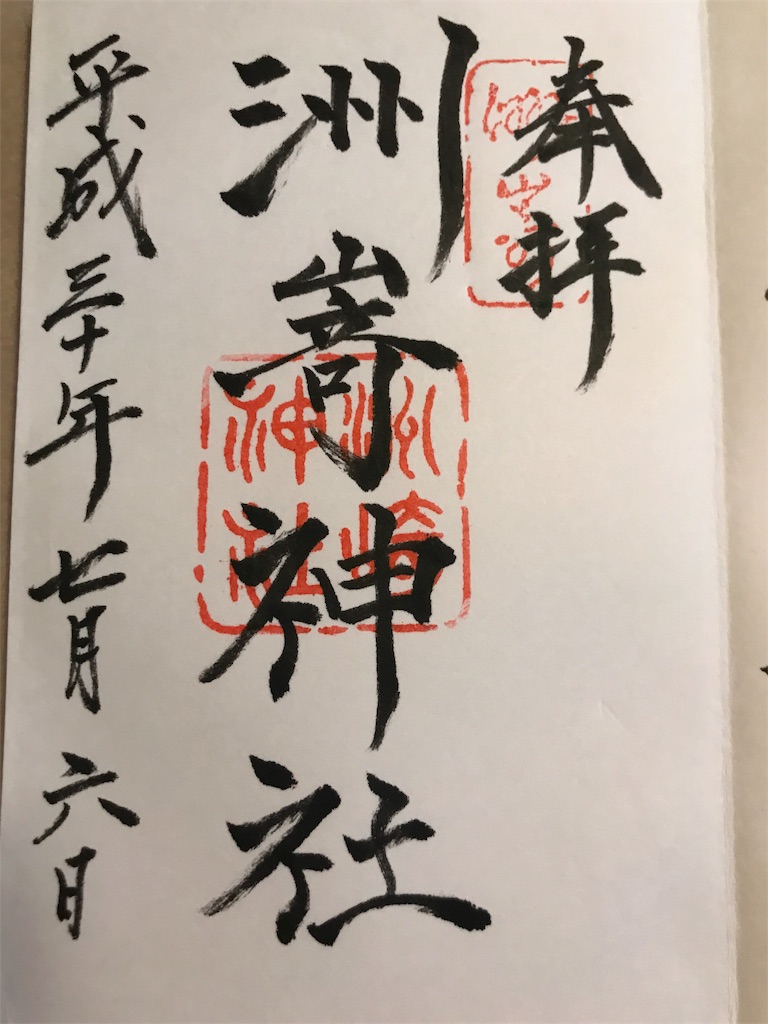 奉拝
洲嵜神社
洲崎
神社
平成三十年七月六日